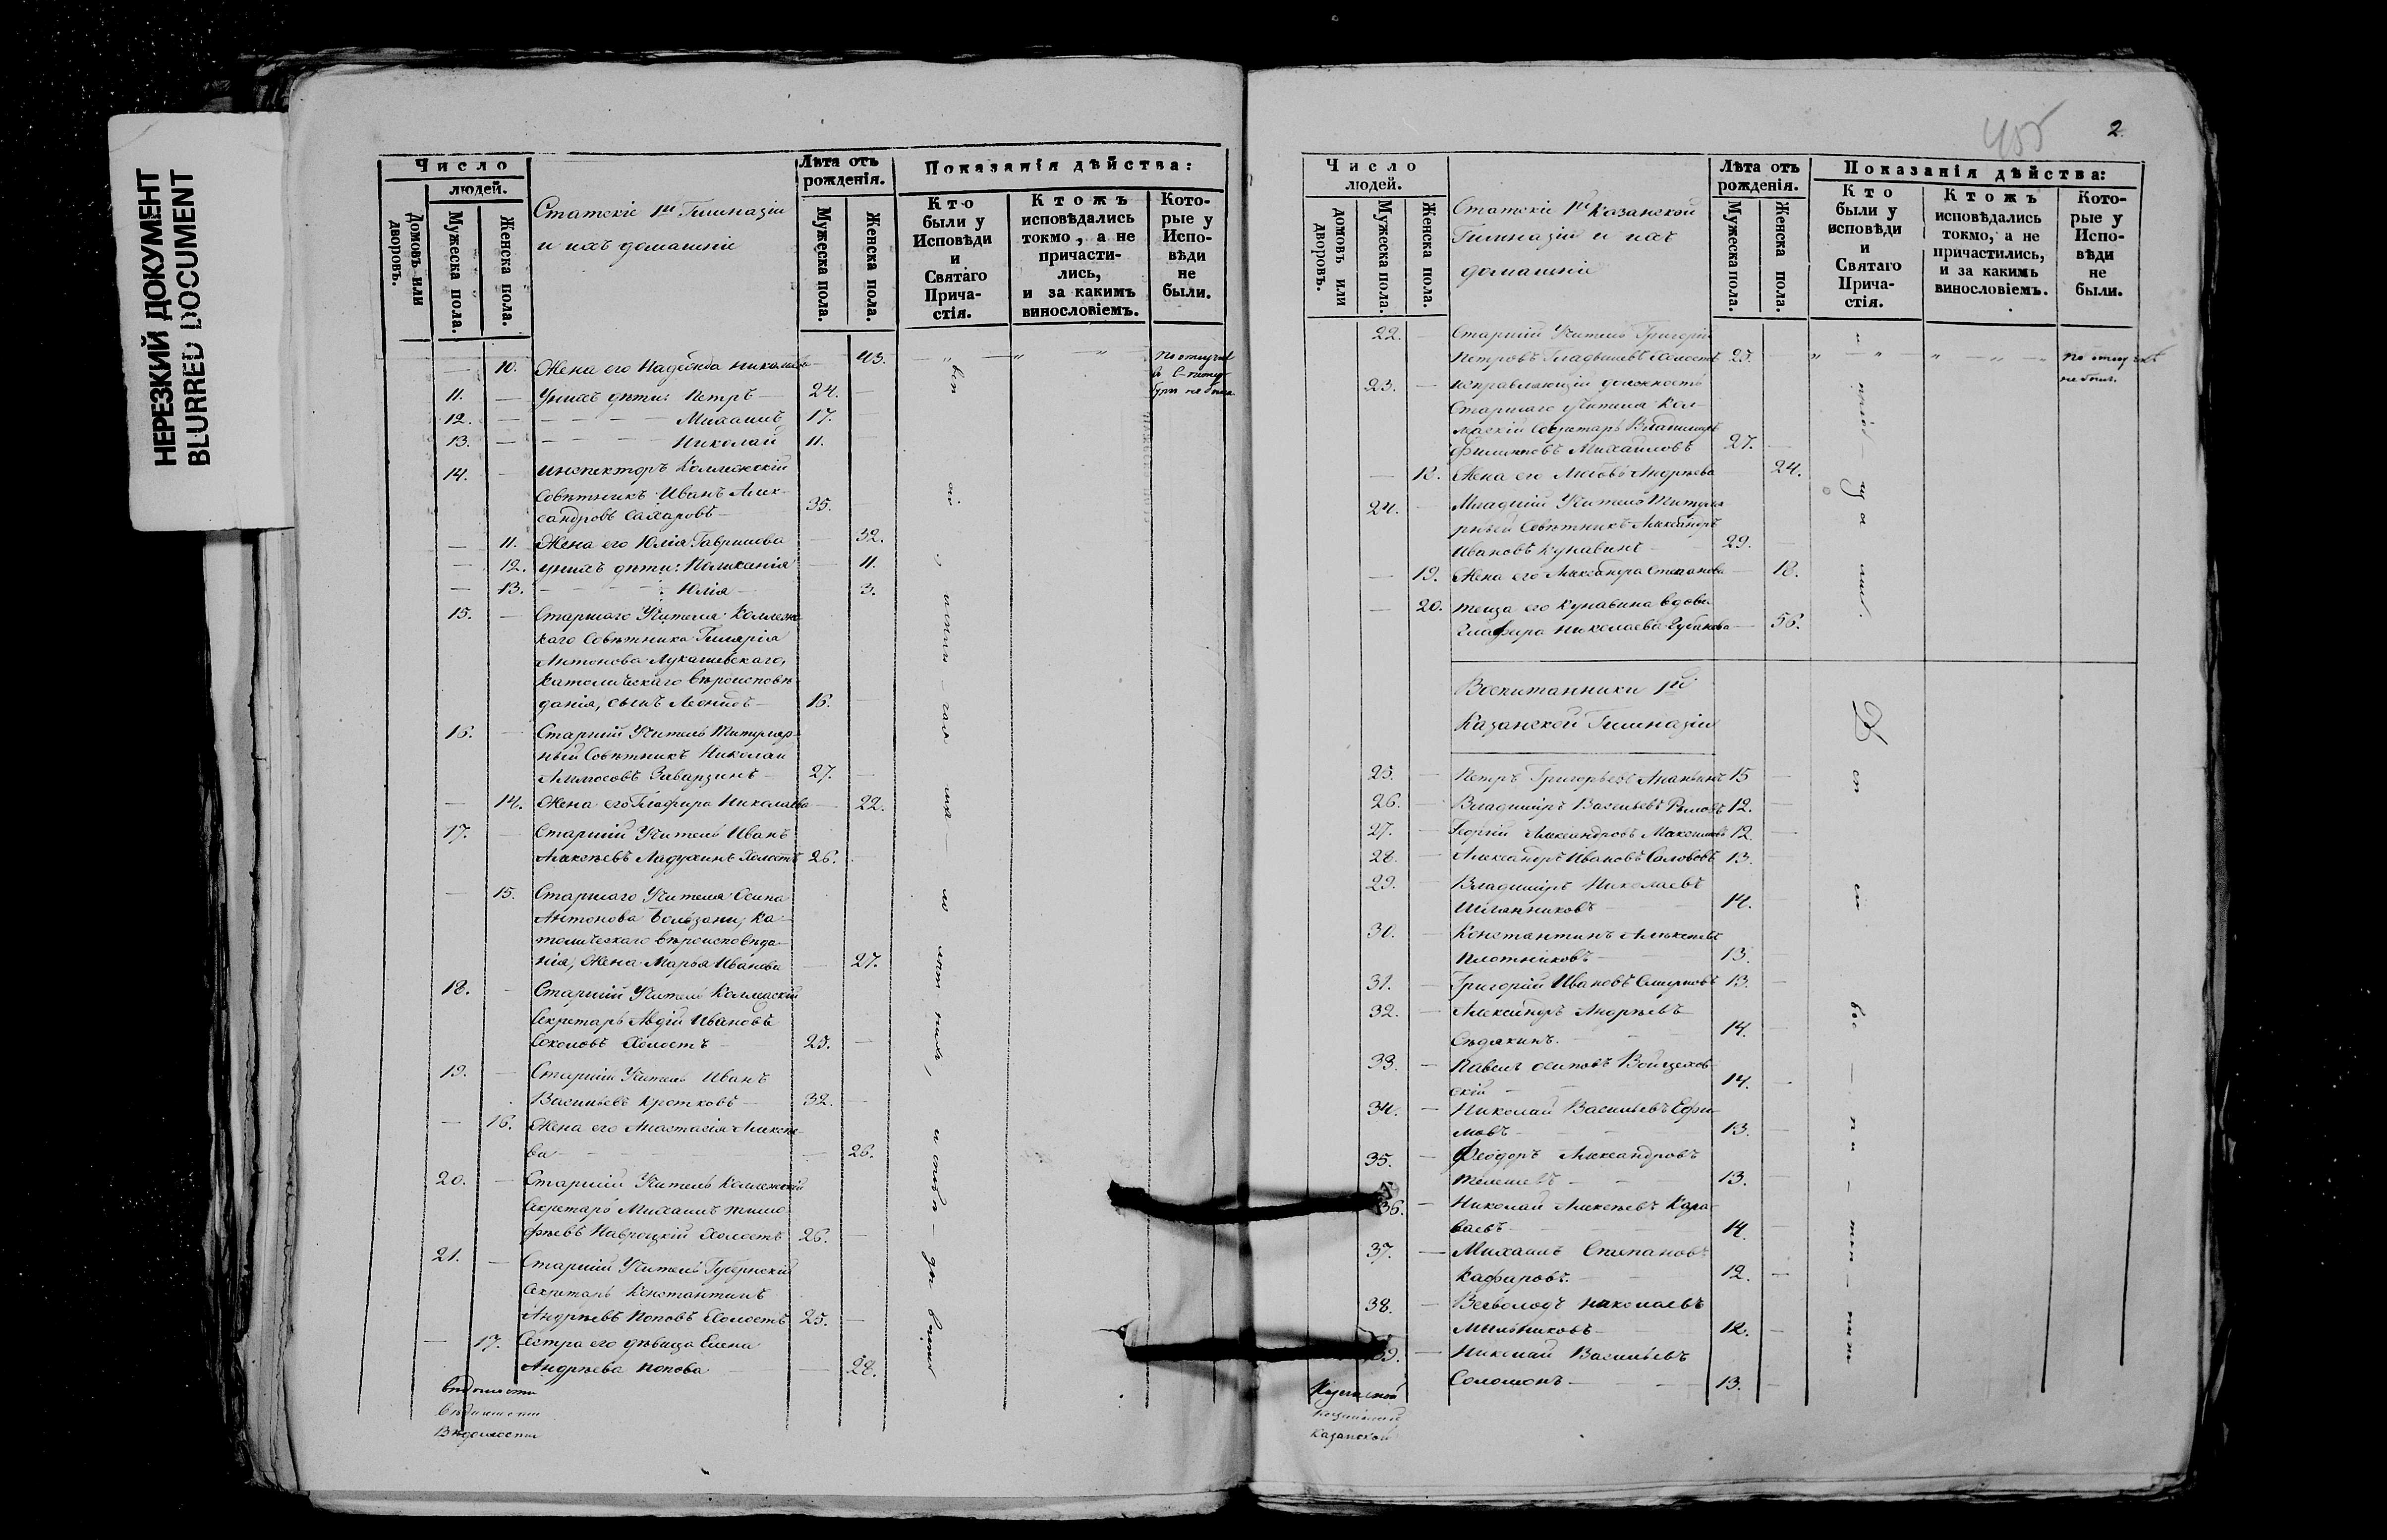 НЕРЕЗКИЙ ДОКУМЕНТ
BLURRED DOCUMENT
Число
людей.
Домовъ или дворовъ.
Мужеска пола.
Женска пола.
Статскіе 1й Гимназіи
и ихъ домашніе
Лѣта отъ рожденія.
Мужеска пола.
Женска пола.
Показанія дѣйства:
Кто были у Исповѣди и Святаго Причастія.
Ктожъ исповѣдались токмо, а не причастились, и за какимъ винословіемъ.
Которые у Исповѣди не были.
— 10. Жена его Надежда Николаева — 43.
11. — У нихъ дѣти: Петръ — 24. —
12. — Михаилъ 17.
13. — Николай 11.
14. — Инспекторъ Коллежскій
Совѣтникъ Иванъ Алек-
сандровъ Сахаровъ — 35. —
— 11. Жена его Юлія Гаврилова — 32.
— 12. у нихъ дѣти: — 11.
— 13. Юлія — 3.
15. — Старшаго Учителя Коллеж-
каго Совѣтника Гиларія
Антонова Лукашевскаго,
Католическаго вѣроисповѣ-
данія, сынъ Леонидъ — 16. —
16. — Старшій Учитель Титуляр-
ный Совѣтникъ Николай
Заварзинъ — 27. —
— 14. Жена его Глафира Николаева — 22.
17. — Старшій Учитель Иванъ
Алексѣевъ Ладухинъ Холостъ 26. —
— 15. Старшаго Учителя Осипа
Антонова Бользани, Ка-
толическаго вѣроисповѣда-
нія, Жена Марья Иванова — 27.
18. — Старшій Учитель Коллежскій
Секретарь Авдій Ивановъ
Соколовъ Холостъ — 25. —
19. — Старшій Учитель Иванъ
Васильевъ Кротковъ — 32. —
— 16. Жена его Анастасія Алексѣе-
ва — 26.
20. — Старшій Учитель Коллежскій
Секретарь Михаилъ Тимо-
фѣевъ Навроцкій Холостъ 26. —
21. — Старшій Учитель Губернскій
Секретарь Константинъ
Андрѣевъ Поповъ Холостъ 25. —
— 17. Сестра его дѣвица Елена
Андрѣева Попова — 28.
Вѣдомости
Вѣдомости
Вѣдомости
455
2.
Число
людей.
домовъ или дворовъ.
Мужеска пола.
Женска пола.
Статскіе 1й Казанской
Гимназіи и ихъ
домашніе
Лѣта отъ рожденія.
Мужеска пола.
Женска пола.
Показанія дѣйства:
Кто были у исповѣди и Святаго Причастія.
Ктожъ исповѣдались токмо, а не причастились, и за какимъ винословіемъ.
Которые у Исповѣди не были.
22. — Старшій Учитель Григорій
Петровъ Холостъ 25. —
23. — Исправляющій должность
Старшаго Учителя Кол-
лежскій Секретарь Владиміръ
Филиповъ Михайловъ 27. —
— 18. Жена его Любовь Андрѣева — 24.
24. — Младшій Учитель Титуля-
рный Совѣтникъ Александръ
Ивановъ Кунавинъ — 29. —
— 19. Жена его Александра Степанова — 18.
— 20. теща его Кунавина вдова
Глафира Николаева Губанова — 56.
Воспитанники 1й
Казанской Гимназіи
25. — Петръ Григорьевъ Ананьинъ 15 —
26. — Владиміръ Васильевъ 12. —
27. — Георгій Александровъ Максимовъ 12 —
28. — Александръ Ивановъ Соловьевъ 13. —
29. — Владиміръ Николаевъ
14. —
30. — Константинъ Алексѣевъ
Плотниковъ — 13. —
31. — Григорій Ивановъ Смирновъ 13. —
32. — Александръ Андрѣевъ
Сѣдякинъ. — 14. —
33. — Павелъ Осиповъ Войцехов-
скій — 14. —
34. — Николай Васильевъ Ефи-
мовъ — 13. —
35. — Ѳеодоръ Александровъ
Телешевъ — 13. —
36. — Николай Алексѣевъ Кара-
ваевъ — 14. —
37. — Михаилъ Степановъ
Кафировъ. — 12. —
38. — Всеволодъ Николаевъ
Мыльниковъ — 12. —
39. — Николай Васильевъ
Соломонъ — 13. —
Казанской
Казанской
Казанской